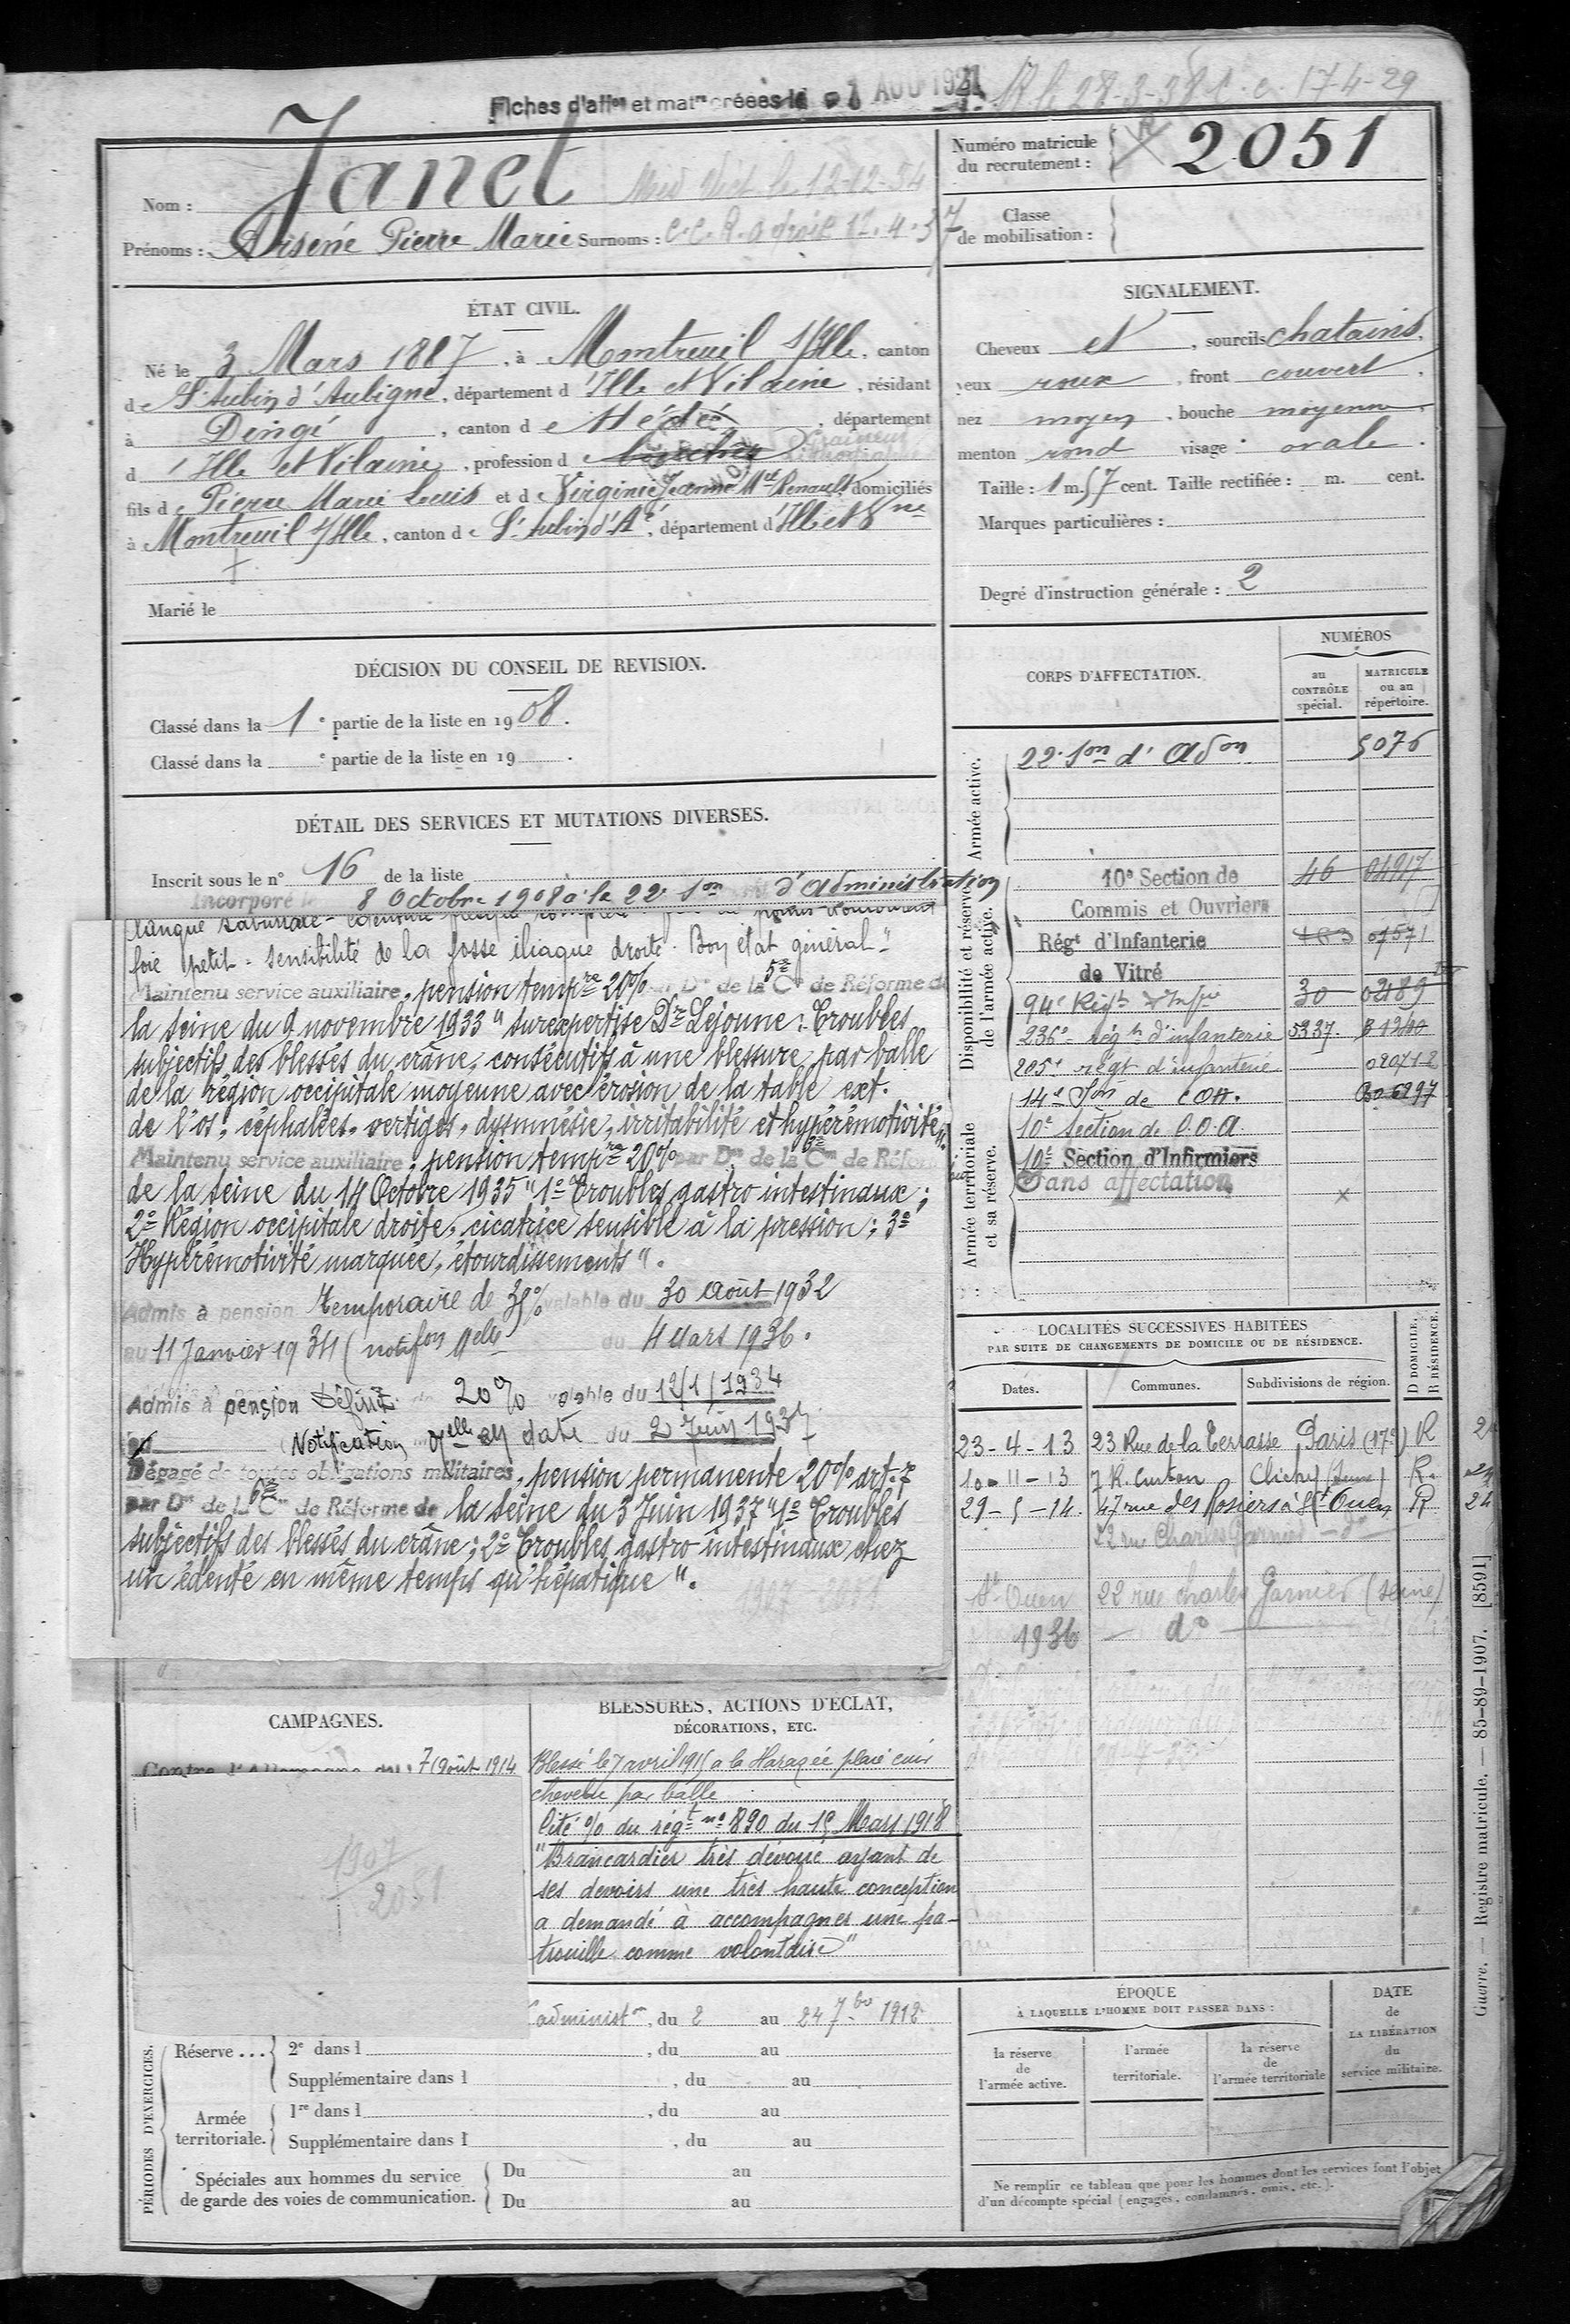 Fiches d'aff<sup>on</sup> et mat<sup>re</sup> créées le 1 AOU 1921
28-3-38 17-4-29
Nom : Janet 12-12-34
Prénoms : Arsène Pierre Marie Surnoms : C.C.R. 12.4.37
Numéro matricule
du recrutement : 2051
Classe
de mobilisation :
ÉTAT CIVIL.
Né le 3 Mars 1887, à Montreuil s/Ille, canton
de St Aubin d'Aubigné, département d'Ille et Vilaine, résidant
à Dingé, canton de Hédé, département
d'Ille et Vilaine, profession de
fils de Pierre Marie Louis et de Virginie Jeanne Mie Renault domiciliés
à Montreuil s/Ille, canton de St Aubin d'Aé, département d'Ille et Vne
Marié le
SIGNALEMENT.
Cheveux et, sourcils chatains.
yeux roux, front couvert.
nez moyen, bouche moyenne.
menton rond visage ovale.
Taille : 1 m. 57 cent. Taille rectifiée : m. cent.
Marques particulières :
Degré d'instruction générale : 2
DÉCISION DU CONSEIL DE REVISION.
Classé dans la 1e partie de la liste en 1908.
Classé dans la e partie de la liste en 19 .
DÉTAIL DES SERVICES ET MUTATIONS DIVERSES.
Inscrit sous le n° 16 de la liste
Incorporé le 8 Octobre 1908 à le 22e Son d'administration
langue saburrale
foie petit - sensibilité de la fosse iliaque droite. Bon état général"
Maintenu service auxiliaire, pension tempre 20% par Don de la 5e Con de Réforme de
la Seine du 9 novembre 1933 "surexpertise Dr Lejonne : Troubles
subjectifs des blessés du crâne, consécutifs à une blessure par balle
de la région occipitale moyenne avec érosion de la table ext.
de l'os : céphalées, vertiges, dysmnésie, irritabilité et hyperémotivité".
Maintenu service auxiliaire ; pension tempre 20% par Don de la 6e Con de Réforme
de la Seine du 14 Octobre 1935 "1° Troubles gastro intestinaux ;
2° Région occipitale droite, cicatrice sensible à la pression ; 3°
Hyperémotivité marquée, étourdissements".
Admis à pension temporaire de 35% valable du 30 Août 1932
au 11 Janvier 1934 (notifon Melle du 4 Mars 1936.
Admis à pension Définit. de 20% valable du 12/1/1934
(Notification Mlle en date du 2 Juin 1937
Dégagé de toutes obligations militaires, pension permanente 20% art. 7
par Don de la 6e Con de Réforme de la Seine du 3 Juin 1937 "1° Troubles
subjectifs des blessés du crâne ; 2° Troubles gastro intestinaux chez
un édenté en même temps qu'hépatique".
1907 2051
CORPS D'AFFECTATION.
NUMÉROS
au
CONTRÔLE
spécial.
MATRICULE
ou au
répertoire.
Armée active.
22e Son d'Adon 5076
Disponibilité et réserve
de l'armée active.
10e Section de 46 04917
Commis et Ouvriers
Régt d'Infanterie 07571
de Vitré
94e Régt d'Infie 30 02189
236e régt d'infanterie 5337.
205e régt d'infanterie 020712
Armée territoriale
et sa réserve.
14e Son de COA. 6297
10e Section de C.O.A
10e Section d'Infirmiers
Sans affectation ×
LOCALITÉS SUCCESSIVES HABITÉES
PAR SUITE DE CHANGEMENTS DE DOMICILE OU DE RÉSIDENCE.
Dates. Communes. Subdivisions de région. D DOMICILE. R RÉSIDENCE.
23-4-13 23 Rue de la Terrasse Paris (17e) R
10-11-13 7 R. Curton Clichy (Seine) R.
29-5-14. 47 rue des Rosiers à St Ouen R 24
22 rue Charles Garnier - do
St Ouen 22 rue Charles Garnier (Seine)
1936 - do
CAMPAGNES.
Contre l'Allemagne du 7 Août 1914
1907
2051
BLESSURES, ACTIONS D'ÉCLAT,
DÉCORATIONS, ETC.
Blessé le 7 avril 1915 a la Harazée plaie cuir
chevelu par balle
Cité % du régt n° 890 du 15 Mars 1918
"Brancardier très dévoué ayant de
ses devoirs une très haute conception
a demandé à accompagner une pa-
trouille comme volontaire"
administon, du 2 au 24 7bre 1912
PÉRIODES D'EXERCICES.
Réserve ... 2e dans l , du au
Supplémentaire dans l , du au
Armée
territoriale. 1re dans l , du au
Supplémentaire dans l , du au
Spéciales aux hommes du service
de garde des voies de communication. Du au
Du au
ÉPOQUE
À LAQUELLE L'HOMME DOIT PASSER DANS :
la réserve
de
l'armée active.
l'armée
territoriale.
la réserve
de
l'armée territoriale
DATE
de
LA LIBÉRATION
du
service militaire.
Ne remplir ce tableau que pour les hommes dont les services font l'objet
d'un décompte spécial (engagés, condamnés, omis, etc.).
Guerre. — Registre matricule. — 85-89-1907. [8591]